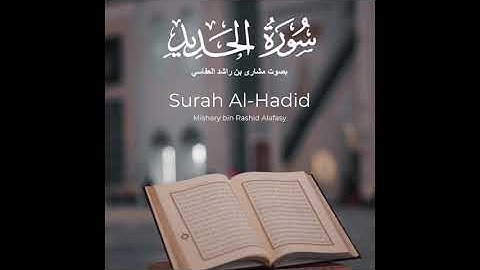 سُورَةُ الحَدِيدِ
بصوت مشاري بن راشد العفاسي
Surah Al-Hadid
Mishary bin Rashid Alafasy